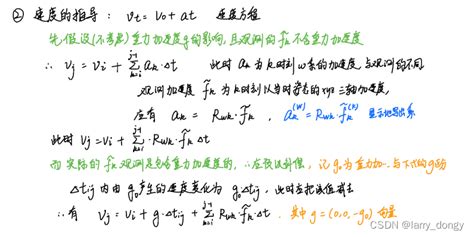 ② 速度的推导: Vt = V0 + at 速度方程
先假设(不考虑)重力加速度g的影响, 且观测的 f̃k 不含重力加速度
∴ Vj = Vi + Σ(k=i, j-1) ak·Δt 此时 ak 为 k时刻 w系的加速度, 与观测的不同
观测加速度 f̃k 为 k时刻 以当时 的xyz三轴加速度,
应有 ak = Rwk·f̃k , ak^(w) = Rwk·f̃k^(k) 显示地写出系
此时 Vj = Vi + Σ(k=i, j-1) Rwk·f̃k Δt
而 实际的 f̃k 观测是包含重力加速度的, ∴ 应该 补偿, 记 g0 为重力加.. 与下式的g
Δtij 内 由 g0 产生的速度变化为 g0Δtij, 此时应把该值减去
∴ 有 Vj = Vi + g·Δtij + Σ(k=i, j-1) Rwk·f̃k·Δt . 其中 g = (0,0,-g0) 向量
CSDN @larry_dongy